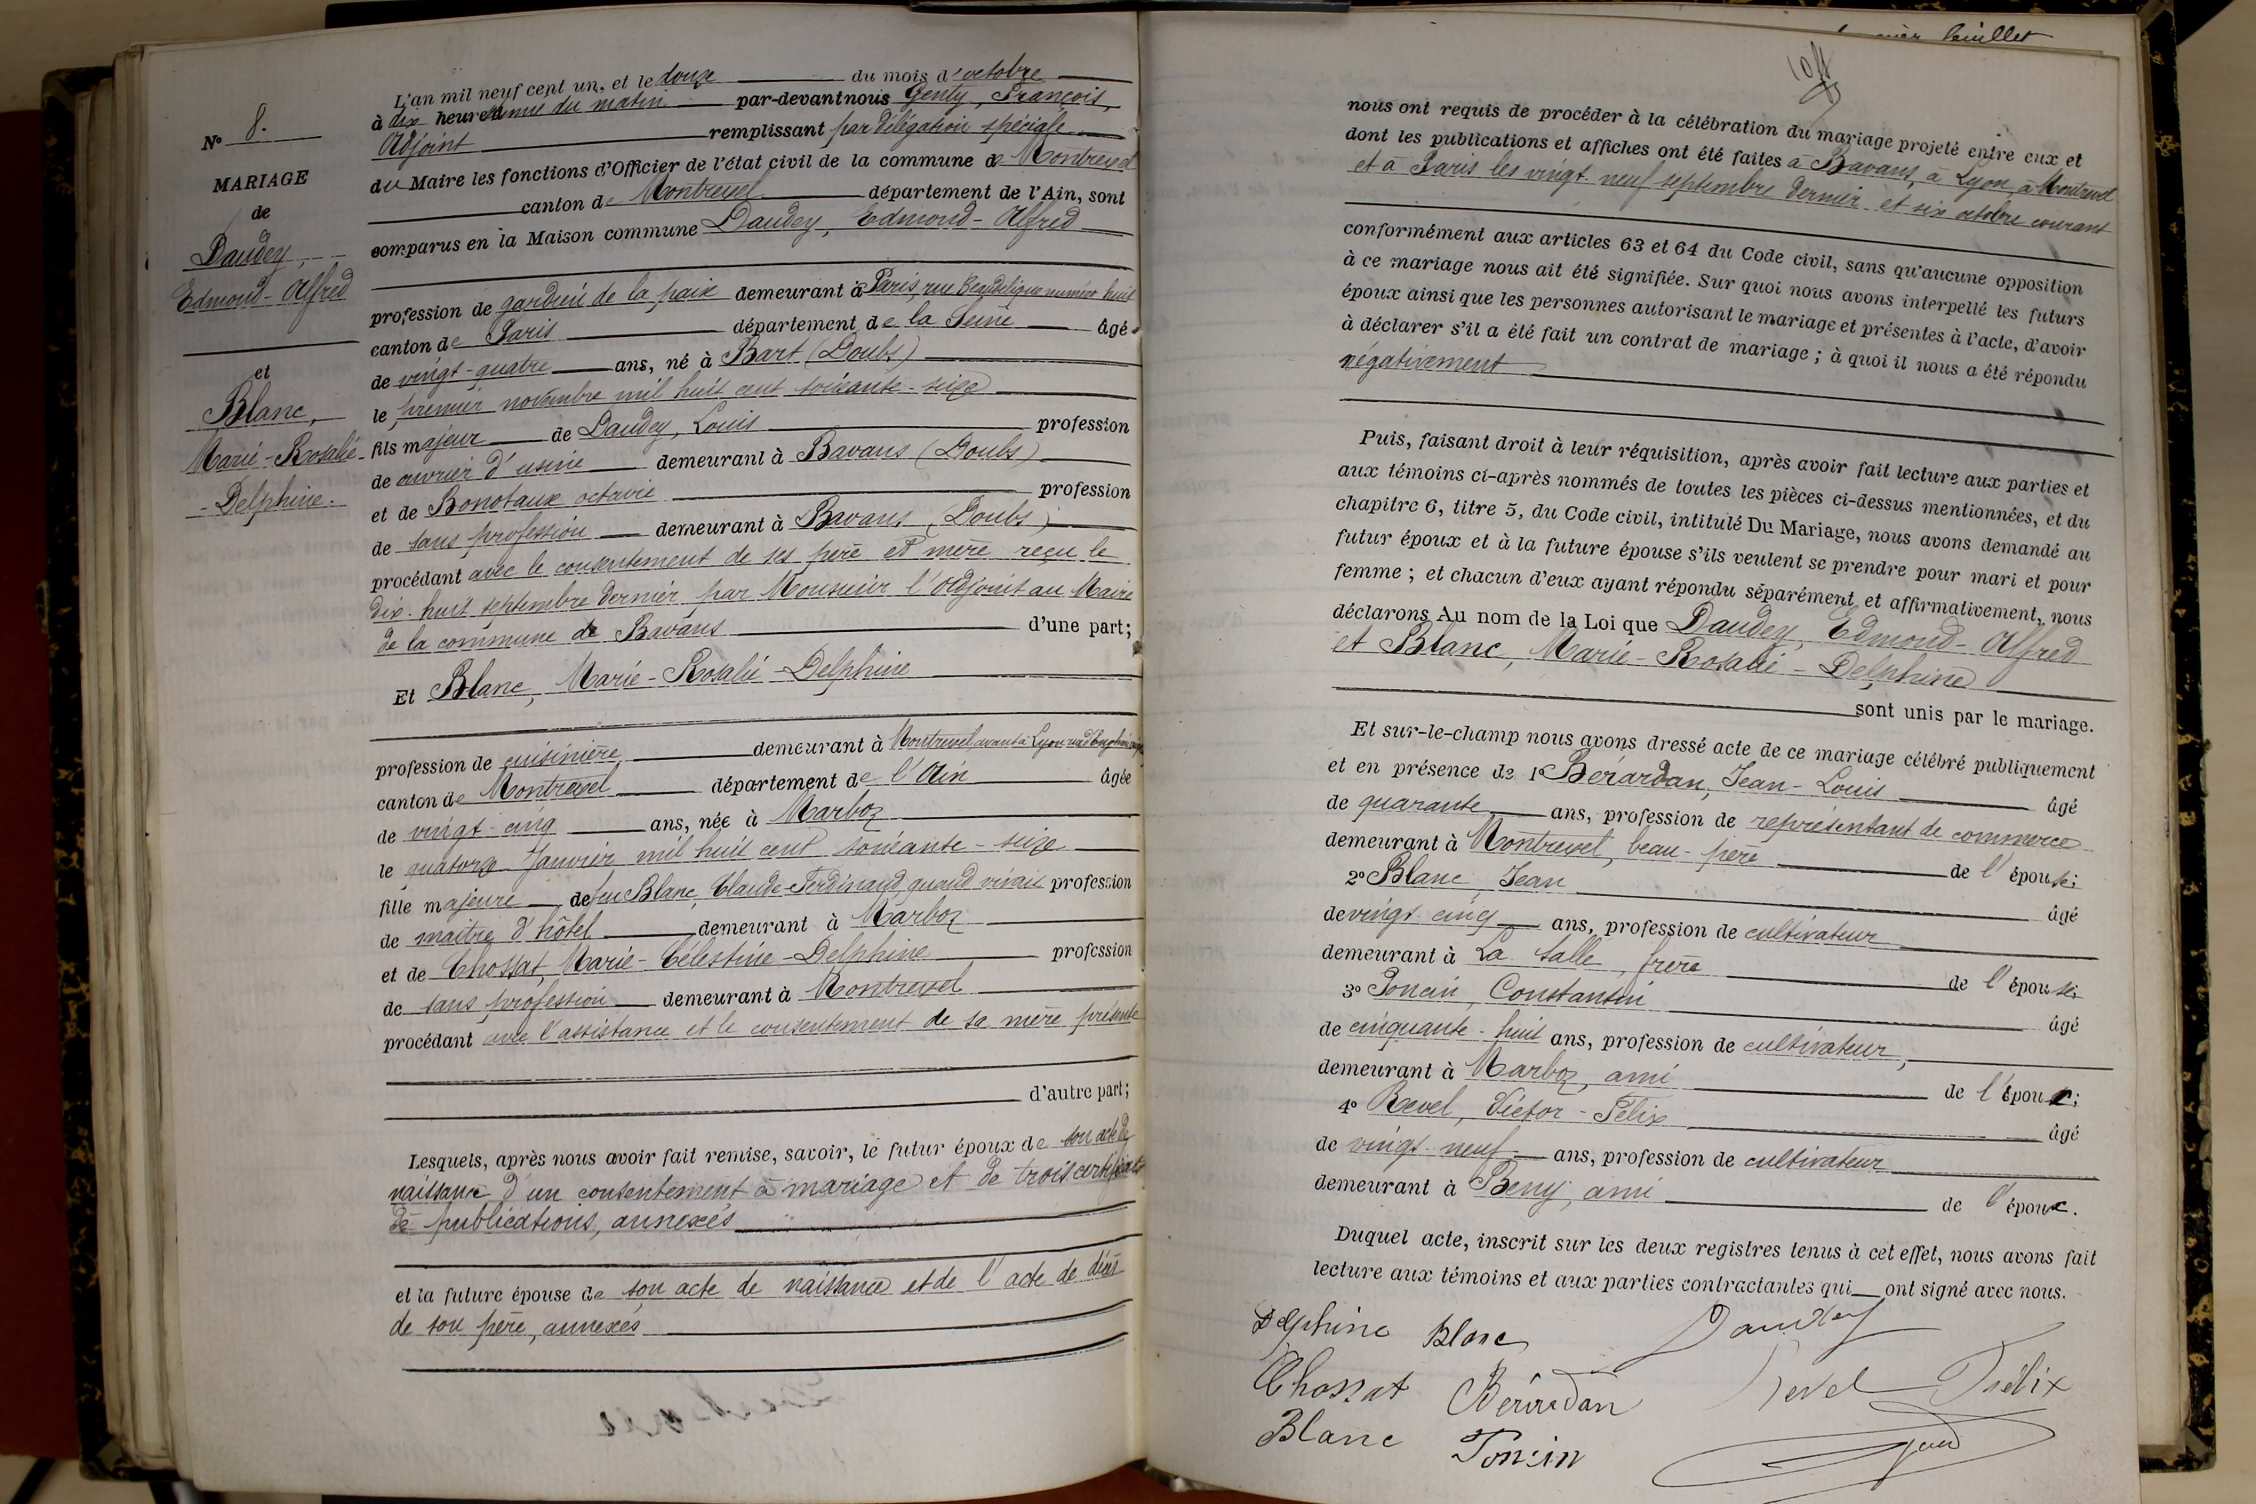 N° 8.
MARIAGE
de
Daudey,
Edmond-Alfred
et
Blanc,
Marie-Rosalie-
-Delphine.
L'an mil neuf cent un, et le douze du mois d'octobre
à dix heures du matin par-devant nous Genty, François,
Adjoint remplissant par délégation spéciale
du Maire les fonctions d'Officier de l'état civil de la commune de Montrevel
canton de Montrevel département de l'Ain, sont
comparus en la Maison commune Daudey, Edmond-Alfred
profession de gardien de la paix demeurant à Paris, rue numéro huit
canton de Paris département de la Seine âgé
de vingt-quatre ans, né à Bart (Doubs)
le premier novembre mil huit cent soixante-seize
fils majeur de Daudey, Louis profession
de ouvrier d'usine demeurant à Bavans (Doubs)
et de Bonotaux octavie profession
de sans profession demeurant à Bavans (Doubs)
procédant avec le consentement de ses père et mère reçu le
dix-huit septembre dernier par Monsieur l'Adjoint au Maire
de la commune de Bavans d'une part;
Et Blanc, Marie-Rosalie-Delphine
profession de cuisinière demeurant à Montrevel avant à Lyon
canton de Montrevel département de l'Ain âgée
de vingt-cinq ans, née à Marboz
le quatorze Janvier mil huit cent soixante-seize
fille majeure de feu Blanc, Claude-Ferdinand, quand vivait profession
de maitre d'hôtel demeurant à Marboz
et de Chossat, Marie-Célestine-Delphine profession
de sans profession demeurant à Montrevel
procédant avec l'assistance et le consentement de sa mère présente
d'autre part;
Lesquels, après nous avoir fait remise, savoir, le futur époux de son acte de
naissance d'un consentement à mariage et de trois certificats
de publications, annexés
et la future épouse de son acte de naissance et de l'acte de décès
de son père, annexés
feuillet
nous ont requis de procéder à la célébration du mariage projeté entre eux et
dont les publications et affiches ont été faites à Bavans, à Lyon, à Montrevel
et à Paris les vingt neuf septembre dernier et six octobre courant
conformément aux articles 63 et 64 du Code civil, sans qu'aucune opposition
à ce mariage nous ait été signifiée. Sur quoi nous avons interpellé les futurs
époux ainsi que les personnes autorisant le mariage et présentes à l'acte, d'avoir
à déclarer s'il a été fait un contrat de mariage; à quoi il nous a été répondu
négativement
Puis, faisant droit à leur réquisition, après avoir fait lecture aux parties et
aux témoins ci-après nommés de toutes les pièces ci-dessus mentionnées, et du
chapitre 6, titre 5, du Code civil, intitulé Du Mariage, nous avons demandé au
futur époux et à la future épouse s'ils veulent se prendre pour mari et pour
femme; et chacun d'eux ayant répondu séparément et affirmativement, nous
déclarons Au nom de la Loi que Daudey, Edmond-Alfred
et Blanc, Marie-Rosalie-Delphine
sont unis par le mariage.
Et sur-le-champ nous avons dressé acte de ce mariage célébré publiquement
et en présence de 1° Bérardan, Jean-Louis âgé
de quarante ans, profession de représentant de commerce
demeurant à Montrevel, beau-père de l'épouse;
2° Blanc, Jean âgé
de vingt-cinq ans, profession de cultivateur
demeurant à La Salle, frère de l'épouse;
3° Poncin, Constantin âgé
de cinquante-huit ans, profession de cultivateur,
demeurant à Marboz, ami de l'époux;
4° Revel, Victor-Félix âgé
de vingt-neuf ans, profession de cultivateur
demeurant à Beny, ami de l'époux.
Duquel acte, inscrit sur les deux registres tenus à cet effet, nous avons fait
lecture aux témoins et aux parties contractantes qui ont signé avec nous.
Delphine Blanc Daudey
Chossat Bérardan Revel Félix
Blanc Poncin